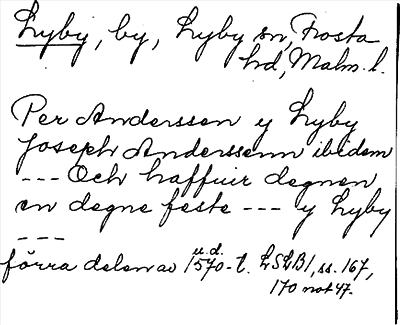 Lyby, by, Lyby sn, Frosta
hd, Malm. l.
Per Andersson y Lyby
Joseph Anderssenn ibidem
--- Och haffuir degnen
en degne feste --- y Lyby
---
u.d.
förra delen av 1570-t. LSLB1, ss. 167,
170 not 47.